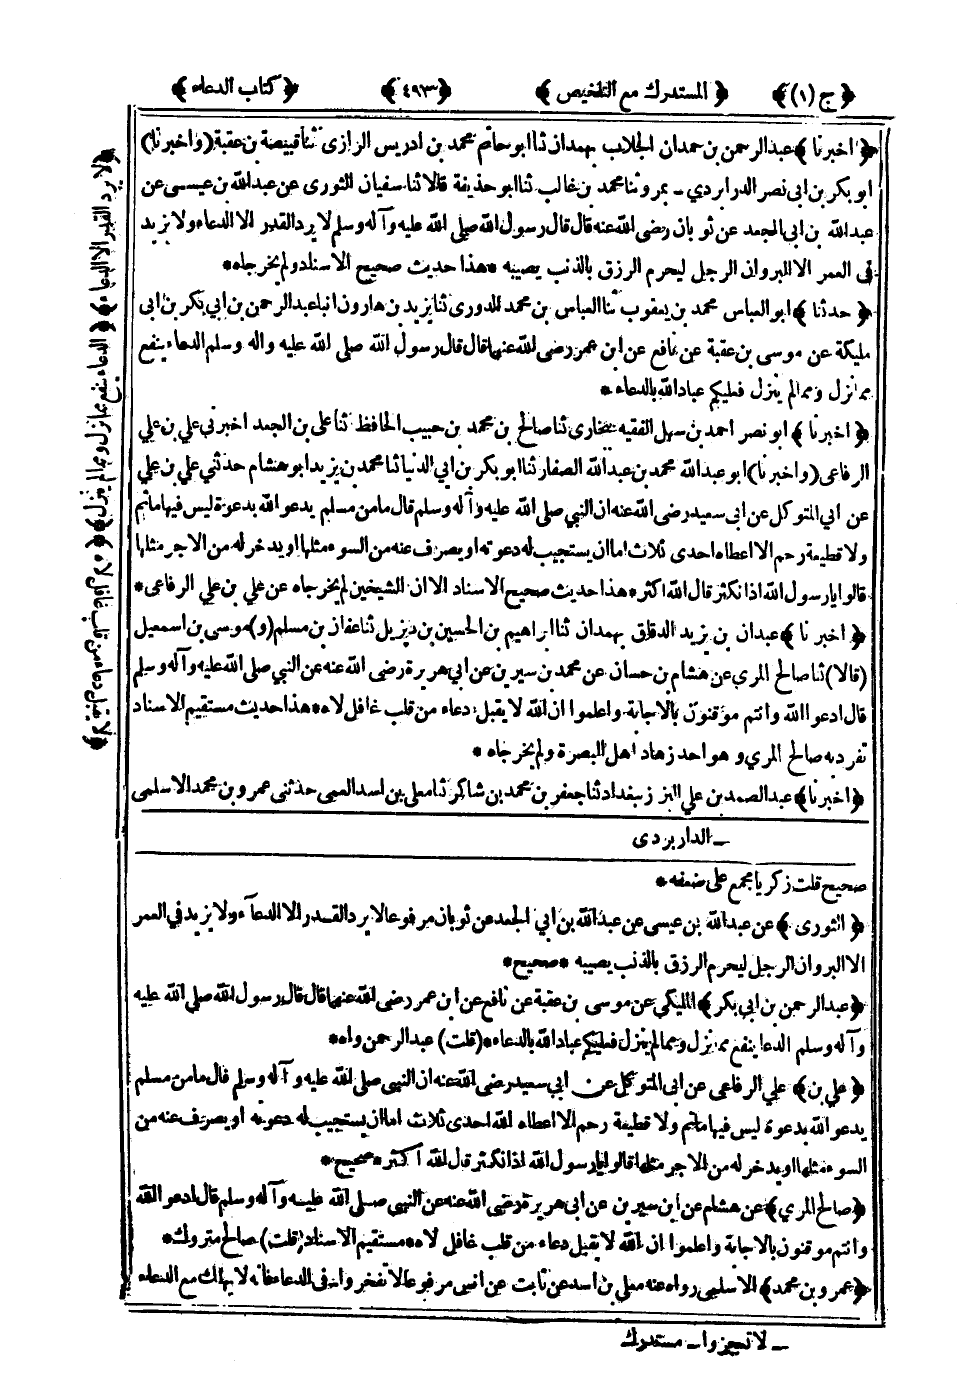 ﴿ ج (١) ﴾ ﴿ المستدرك مع التلخيص ﴾ ﴿ ٤٩٣ ﴾ ﴿ كتاب الدعاء ﴾
﴿ اخبرنا ﴾ عبد الرحمن بن حمدان الجلاب بهمدان ثنا ابو حاتم محمد بن ادريس الرازى ثنا قبيصة بن عقبة (واخبرنا)
ابو بكر بن ابى نصر الدرابردي ــ بمرو ثنا محمد بن غالب ثنا ابو حذيفة قالا ثنا سفيان الثورى عن عبد الله بن عيسى عن
عبد الله بن ابى الجعد عن ثوبان رضى الله عنه قال قال رسول الله صلى الله عليه وآله وسلم لا يرد القدر الا الدعاء ولا يزيد
فى العمر الا البر وان الرجل ليحرم الرزق بالذنب يصيبه * هذا حديث صحيح الاسناد ولم يخرجاه *
﴿ حدثنا ﴾ ابو العباس محمد بن يعقوب ثنا العباس بن محمد الدورى ثنا يزيد بن هارون انبا عبد الرحمن بن ابي بكر بن ابى
مليكة عن موسى بن عقبة عن نافع عن ابن عمر رضى الله عنهما قال قال رسول الله صلى الله عليه واله وسلم الدعاء ينفع
مما نزل ومما لم ينزل فعليكم عباد الله بالدعاء *
﴿ اخبرنا ﴾ ابو نصر احمد بن سهل الفقيه ببخارى ثنا صالح بن محمد بن حبيب الحافظ ثنا على بن الجعد اخبرني علي بن علي
الرفاعى (واخبرنا) ابو عبد الله محمد بن عبد الله الصفار ثنا ابو بكر بن ابي الدنيا ثنا محمد بن يزيد ابو هشام حدثني علي بن علي
عن ابي المتوكل عن ابى سعيد رضى الله عنه ان النبي صلى الله عليه وآله وسلم قال ما من مسلم يدعو الله بدعوة ليس فيها مأثم
ولا قطيعة رحم الا اعطاه احدى ثلاث اما ان يستجيب له دعوته او يصرف عنه من السوء مثلها او يدخر له من الاجر مثلها
قالوا يا رسول الله اذا نكثر قال الله اكثر * هذا حديث صحيح الاسناد الا ان الشيخين لم يخرجاه عن علي بن علي الرفاعى *
﴿ اخبرنا ﴾ عبدان بن يزيد الدقاق بهمدان ثنا ابراهيم بن الحسين بن ديزيل ثنا عفان بن مسلم (و) موسى بن اسمعيل
(قالا) ثنا صالح المري عن هشام بن حسان عن محمد بن سيرين عن ابي هريرة رضى الله عنه عن النبي صلى الله عليه وآله وسلم
قال ادعوا الله وانتم موقنون بالاجابة واعلموا ان الله لا يقبل دعاء من قلب غافل لاه * هذا حديث مستقيم الاسناد
تفرد به صالح المري وهو احد زهاد اهل البصرة ولم يخرجاه *
﴿ اخبرنا ﴾ عبد الصمد بن علي البزاز ببغداد ثنا جعفر بن محمد بن شاكر ثنا معلى بن اسد العمى حدثنى عمرو بن محمد الاسلمى
ــ الداربردى
صحيح قلت زكريا مجمع على ضعفه *
﴿ الثورى ﴾ عن عبد الله بن عيسى عن عبد الله بن ابي الجعد عن ثوبان مرفوعا لا يرد القدر الا الدعآء ولا يزيد في العمر
الا البر وان الرجل ليحرم الرزق بالذنب يصيبه * صحيح *
﴿ عبد الرحمن بن ابي بكر ﴾ المليكي عن موسى بن عقبة عن نافع عن ابن عمر رضى الله عنهما قال قال رسول الله صلى الله عليه
وآله وسلم الدعا ينفع مما نزل ومما لم ينزل فعليكم عباد الله بالدعاء * (قلت) عبد الرحمن واه *
﴿ علي بن ﴾ علي الرفاعى عن ابى المتوكل عن ابي سعيد رضى الله عنه ان النبى صلى الله عليه وآله وسلم قال ما من مسلم
يدعو الله بدعوة ليس فيها مأثم ولا قطيعة رحم الا اعطاه الله احدى ثلاث اما ان يستجيب له دعوته او يصرف عنه من
السوء مثلها او يدخر له من الاجر مثلها قالوا يا رسول الله اذا نكثر قال الله اكثر * صحيح *
﴿ صالح المري ﴾ عن هشام عن ابن سيرين عن ابى هريرة رضى الله عنه عن النبى صلى الله عليه وآله وسلم قال ادعو الله
وانتم موقنون بالاجابة واعلموا ان الله لا يقبل دعاء من قلب غافل لاه * مستقيم الاسناد (قلت) صالح متروك *
﴿ عمرو بن محمد ﴾ الاسلمى رواه عنه معلى بن اسد عن ثابت عن انس مرفوعا لا تفخروا فى الدعاء فانه لا يهلك مع الدعاء
ــ لا تعجزوا ــ مستدرك
﴿ لا يرد القدر الا الدعاء ﴾ ﴿ الدعاء ينفع مما نزل ومما لم ينزل ﴾ ﴿ لا يقبل دعاء من قلب غافل لاه ﴾